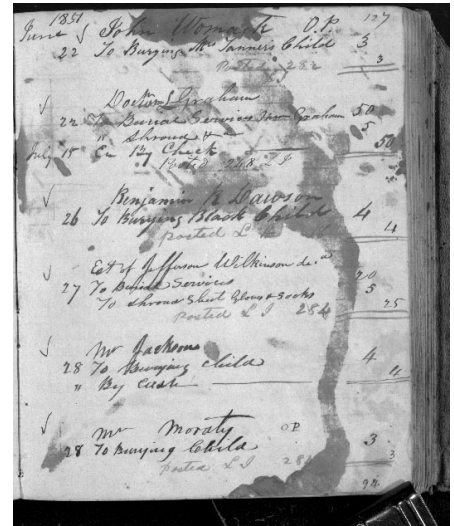 1851 127
June John Womack O.P.
22 To Burying Mrs Tanners Child 3
Posted 282 3
Doctor Graham
22 To Burial Services Graham 50
" Shroud & 5
July 15 Cr By Check 50
Posted 248 L I
Benjamin R Dawson
26 To Burying Black Child 4
posted L 4
Est of Jefferson Wilkinson decd
27 To Burial Services 20
To Shroud Shirt Gloves & Socks 5
Posted L I 284 25
Mr Jackson
28 To Burying Child 4
" By Cash 4
Mr Moraty OP
28 To Burying Child 3
posted L I 3
92